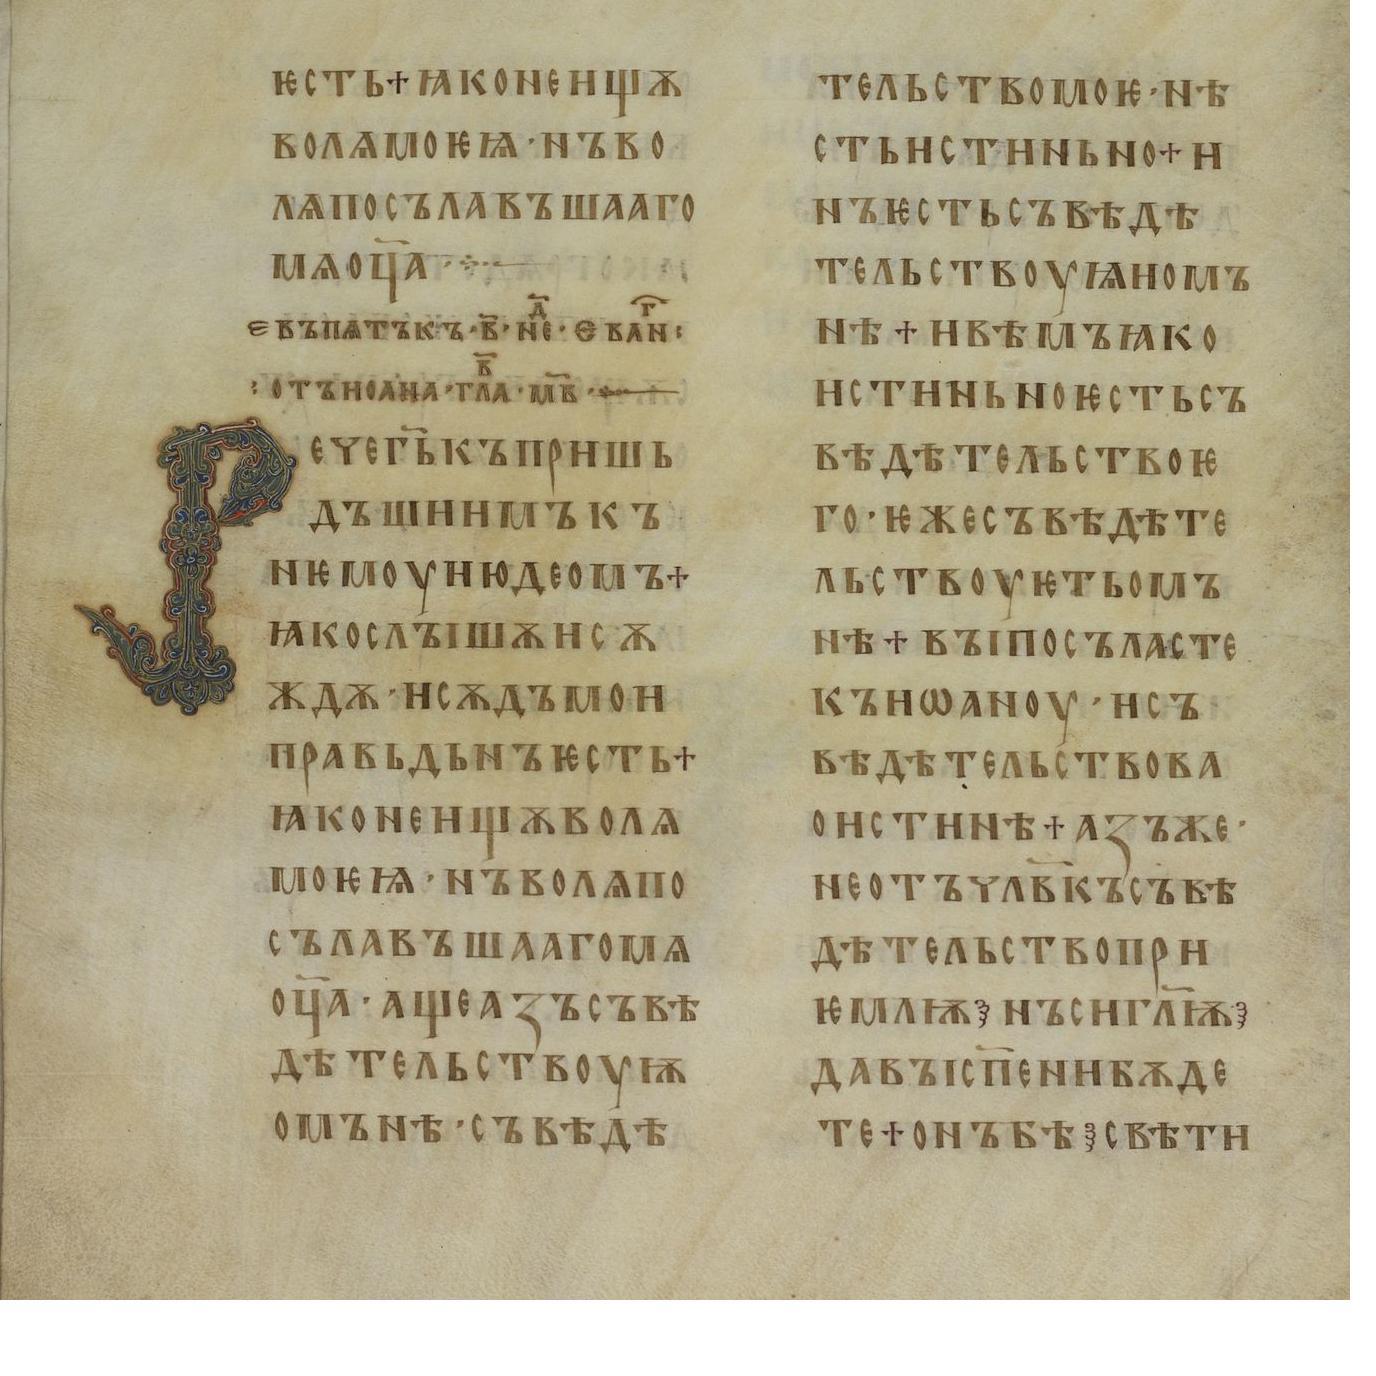 ѥсть+ꙗконеищѫ
волѧмоѥѩ·нъво
лѧпосълавъшааго
мѧоц҃а
Євъпѧтъкъ·в҃·не҃·д҃·єва҃н·г҃:
:отъиоана·гла҃·в҃·мв҃·
ечегь҃къпришь
дъшиимъкъ
немоуиюдеомъ+
ꙗкослъішѫисѫ
ждѫ·исѫдъмои
правьдьнъѥсть+
ꙗконеищѫволѧ
моѥѩ·нъволѧпо
сълавъшаагомѧ
оц҃а·ащеазъсъвѣ
дѣтельствоуѭ
омънѣ·съвѣдѣ
тельствомоѥ·нѣ
стьистиньно+и
нъѥстьсъвѣдѣ
тельствоуѩиомъ
нѣ+ивѣмъꙗко
истиньноѥстьсъ
вѣдѣтельствоѥ
го·ѥжесъвѣдѣте
льствоуѥтьомъ
нѣ+въіпосъласте
къиѡаноу·исъ
вѣдѣтельствова
оистинѣ+азъже·
неотъчлв҃късъвѣ
дѣтельствопри
ѥмлѭ꙳нъсигл҃ѭ꙳
давъісп҃енибѫде
те+онъбѣ꙳свѣти